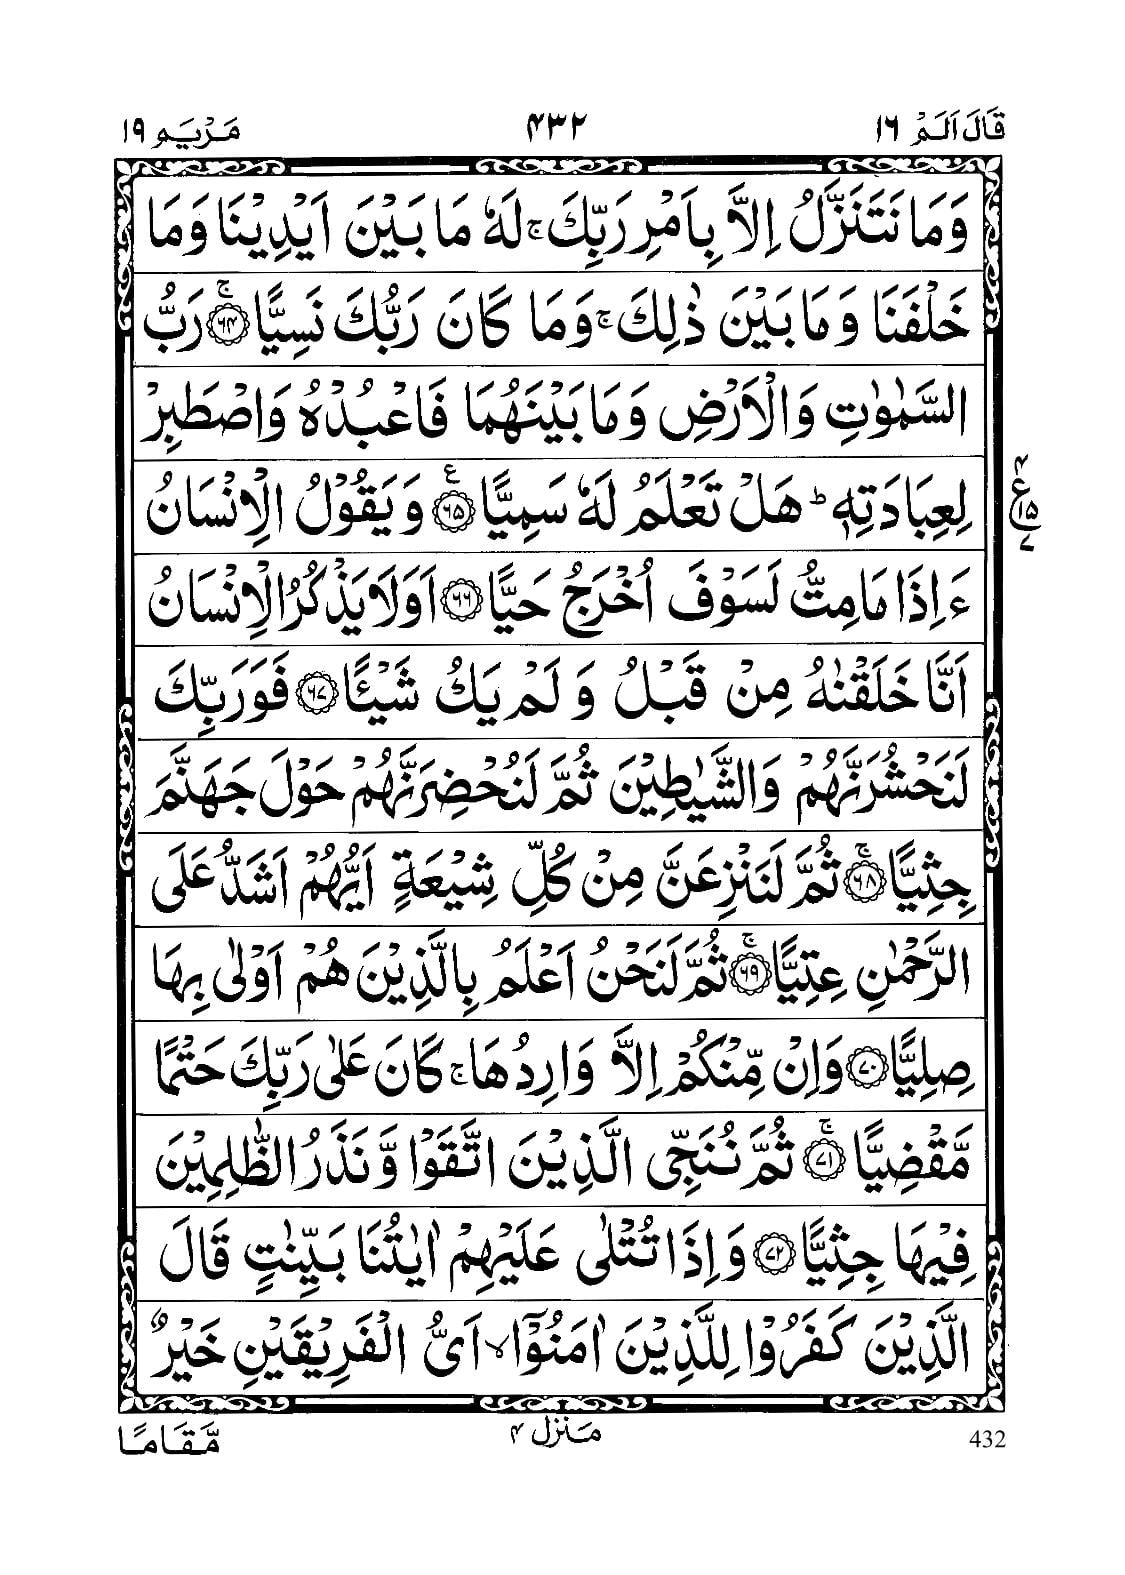 قَالَ اَلَمْ ١٦ ۴۳۲ مَرْيَم ١٩
وَمَا نَتَنَزَّلُ اِلَّا بِاَمْرِ رَبِّكَ ۚ لَهٗ مَا بَيْنَ اَيْدِيْنَا وَمَا
خَلْفَنَا وَمَا بَيْنَ ذٰلِكَ ۚ وَمَا كَانَ رَبُّكَ نَسِيًّا ۚ ﴿۶۴﴾ رَبُّ
السَّمٰوٰتِ وَالْاَرْضِ وَمَا بَيْنَهُمَا فَاعْبُدْهُ وَاصْطَبِرْ
لِعِبَادَتِهٖ ؕ هَلْ تَعْلَمُ لَهٗ سَمِيًّا ﴿۶۵﴾ ع وَيَقُوْلُ الْاِنْسَانُ
ع ١٥ ٧
ءَاِذَا مَا مِتُّ لَسَوْفَ اُخْرَجُ حَيًّا ﴿۶۶﴾ اَوَلَا يَذْكُرُ الْاِنْسَانُ
اَنَّا خَلَقْنٰهُ مِنْ قَبْلُ وَلَمْ يَكُ شَيْـًٔا ﴿۶۷﴾ فَوَرَبِّكَ
لَنَحْشُرَنَّهُمْ وَالشَّيٰطِيْنَ ثُمَّ لَنُحْضِرَنَّهُمْ حَوْلَ جَهَنَّمَ
جِثِيًّا ۚ ﴿۶۸﴾ ثُمَّ لَنَنْزِعَنَّ مِنْ كُلِّ شِيْعَةٍ اَيُّهُمْ اَشَدُّ عَلَى
الرَّحْمٰنِ عِتِيًّا ۚ ﴿۶۹﴾ ثُمَّ لَنَحْنُ اَعْلَمُ بِالَّذِيْنَ هُمْ اَوْلٰى بِهَا
صِلِيًّا ﴿۷۰﴾ وَاِنْ مِّنْكُمْ اِلَّا وَارِدُهَا ۚ كَانَ عَلٰى رَبِّكَ حَتْمًا
مَّقْضِيًّا ۚ ﴿۷۱﴾ ثُمَّ نُنَجِّى الَّذِيْنَ اتَّقَوْا وَّنَذَرُ الظّٰلِمِيْنَ
فِيْهَا جِثِيًّا ﴿۷۲﴾ وَاِذَا تُتْلٰى عَلَيْهِمْ اٰيٰتُنَا بَيِّنٰتٍ قَالَ
الَّذِيْنَ كَفَرُوْا لِلَّذِيْنَ اٰمَنُوْٓا ۙ اَىُّ الْفَرِيْقَيْنِ خَيْرٌ
432 مَنزل ۴ مَّقَامًا